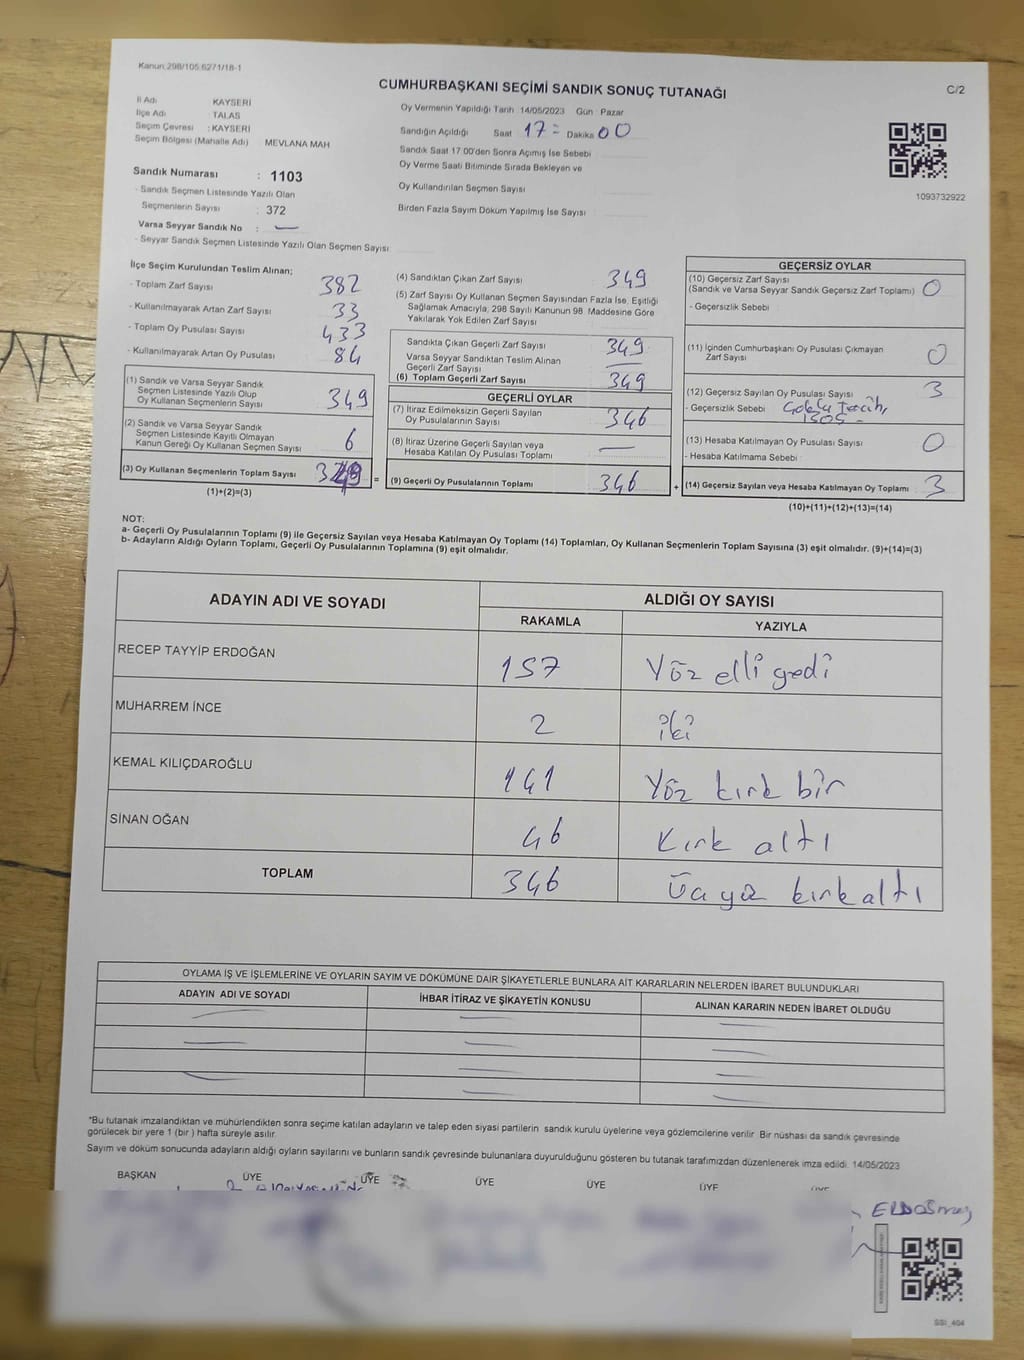 Kanun:298/105,6271/18-1
CUMHURBAŞKANI SEÇİMİ SANDIK SONUÇ TUTANAĞI
C/2
İl Adı : KAYSERİ
İlçe Adı : TALAS
Seçim Çevresi : KAYSERİ
Seçim Bölgesi (Mahalle Adı) MEVLANA MAH
Sandık Numarası : 1103
- Sandık Seçmen Listesinde Yazılı Olan
Seçmenlerin Sayısı : 372
Varsa Seyyar Sandık No : —
- Seyyar Sandık Seçmen Listesinde Yazılı Olan Seçmen Sayısı:
Oy Vermenin Yapıldığı Tarih 14/05/2023 Gün : Pazar
Sandığın Açıldığı Saat 17 = Dakika 00
Sandık Saat 17.00'den Sonra Açımış İse Sebebi :
Oy Verme Saati Bitiminde Sırada Bekleyen ve
Oy Kullandırılan Seçmen Sayısı :
Birden Fazla Sayım Döküm Yapılmış İse Sayısı :
1093732922
İlçe Seçim Kurulundan Teslim Alınan;
- Toplam Zarf Sayısı 382
- Kullanılmayarak Artan Zarf Sayısı 33
- Toplam Oy Pusulası Sayısı 433
- Kullanılmayarak Artan Oy Pusulası 84
(1) Sandık ve Varsa Seyyar Sandık
Seçmen Listesinde Yazılı Olup
Oy Kullanan Seçmenlerin Sayısı 349
(2) Sandık ve Varsa Seyyar Sandık
Seçmen Listesinde Kayıtlı Olmayan
Kanun Gereği Oy Kullanan Seçmen Sayısı 6
(3) Oy Kullanan Seçmenlerin Toplam Sayısı
(1)+(2)=(3)
(4) Sandıktan Çıkan Zarf Sayısı 349
(5) Zarf Sayısı Oy Kullanan Seçmen Sayısından Fazla İse, Eşitliği
Sağlamak Amacıyla; 298 Sayılı Kanunun 98. Maddesine Göre
Yakılarak Yok Edilen Zarf Sayısı
Sandıkta Çıkan Geçerli Zarf Sayısı 349
Varsa Seyyar Sandıktan Teslim Alınan
Geçerli Zarf Sayısı —
(6) Toplam Geçerli Zarf Sayısı 349
GEÇERLİ OYLAR
(7) İtiraz Edilmeksizin Geçerli Sayılan
Oy Pusulalarının Sayısı 346
(8) İtiraz Üzerine Geçerli Sayılan veya
Hesaba Katılan Oy Pusulası Toplamı —
= (9) Geçerli Oy Pusulalarının Toplamı 346
GEÇERSİZ OYLAR
(10) Geçersiz Zarf Sayısı
(Sandık ve Varsa Seyyar Sandık Geçersiz Zarf Toplamı) 0
- Geçersizlik Sebebi :
(11) İçinden Cumhurbaşkanı Oy Pusulası Çıkmayan
Zarf Sayısı 0
(12) Geçersiz Sayılan Oy Pusulası Sayısı 3
- Geçersizlik Sebebi :
(13) Hesaba Katılmayan Oy Pusulası Sayısı 0
- Hesaba Katılmama Sebebi :
+ (14) Geçersiz Sayılan veya Hesaba Katılmayan Oy Toplamı 3
(10)+(11)+(12)+(13)=(14)
NOT:
a- Geçerli Oy Pusulalarının Toplamı (9) ile Geçersiz Sayılan veya Hesaba Katılmayan Oy Toplamı (14) Toplamları, Oy Kullanan Seçmenlerin Toplam Sayısına (3) eşit olmalıdır. (9)+(14)=(3)
b- Adayların Aldığı Oyların Toplamı, Geçerli Oy Pusulalarının Toplamına (9) eşit olmalıdır.
ADAYIN ADI VE SOYADI
ALDIĞI OY SAYISI
RAKAMLA YAZIYLA
RECEP TAYYİP ERDOĞAN 157 Yüz elli yedi
MUHARREM İNCE 2 iki
KEMAL KILIÇDAROĞLU 141 Yüz kırk bir
SİNAN OĞAN 46 Kırk altı
TOPLAM 346 Üç yüz kırk altı
OYLAMA İŞ VE İŞLEMLERİNE VE OYLARIN SAYIM VE DÖKÜMÜNE DAİR ŞİKAYETLERLE BUNLARA AİT KARARLARIN NELERDEN İBARET BULUNDUKLARI
ADAYIN ADI VE SOYADI İHBAR İTİRAZ VE ŞİKAYETİN KONUSU ALINAN KARARIN NEDEN İBARET OLDUĞU
*Bu tutanak imzalandıktan ve mühürlendikten sonra seçime katılan adayların ve talep eden siyasi partilerin sandık kurulu üyelerine veya gözlemcilerine verilir. Bir nüshası da sandık çevresinde
görülecek bir yere 1 (bir) hafta süreyle asılır.
Sayım ve döküm sonucunda adayların aldığı oyların sayılarını ve bunların sandık çevresinde bulunanlara duyurulduğunu gösteren bu tutanak tarafımızdan düzenlenerek imza edildi. 14/05/2023
BAŞKAN ÜYE ÜYE ÜYE ÜYE ÜYE
SSI_404